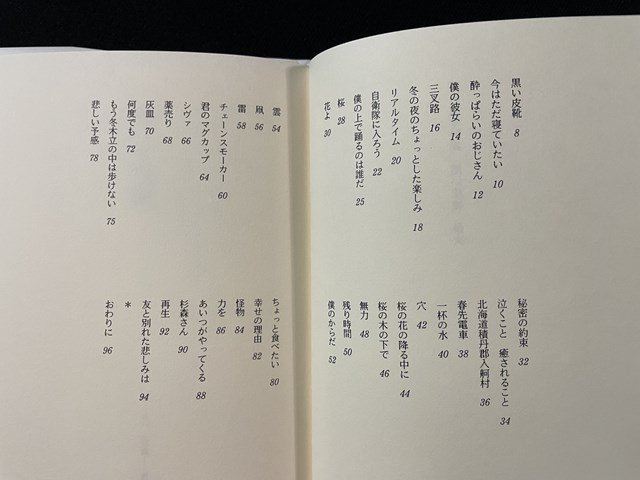 黒い皮靴 8
今はただ寝ていたい 10
酔っぱらいのおじさん 12
僕の彼女 14
三叉路 16
冬の夜のちょっとした楽しみ 18
リアルタイム 20
自衛隊に入ろう 22
僕の上で踊るのは誰だ 25
桜 28
花よ 30
秘密の約束 32
泣くこと 癒されること 34
北海道積丹郡入舸村 36
春先電車 38
一杯の水 40
穴 42
桜の花の降る中に 44
桜の木の下で 46
無力 48
残り時間 50
僕のからだ 52
雲 54
凧 56
雷 58
チェーンスモーカー 60
君のマグカップ 64
シヴァ 66
薬売り 68
灰皿 70
何度でも 72
もう冬木立の中は歩けない 75
悲しい予感 78
ちょっと食べたい 80
幸せの理由 82
怪物 84
力を 86
あいつがやってくる 88
杉森さん 90
再生 92
友と別れた悲しみは 94
*
おわりに 96